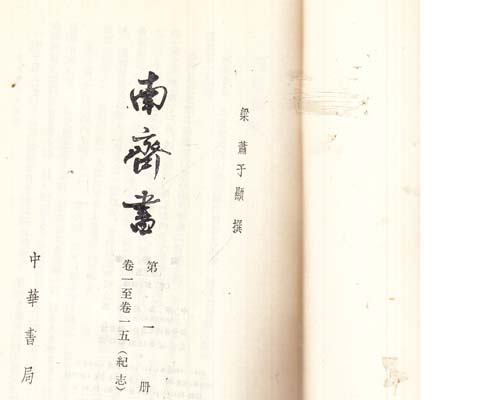 梁 蕭子顯 撰
南齊書
第一册
卷一至卷一五（紀志）
中華書局